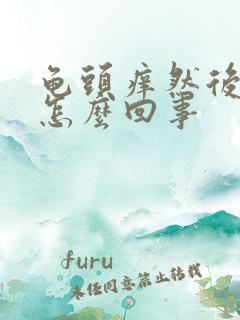 龟頭痒然後
怎麼回事
furu
未经同意禁止转载